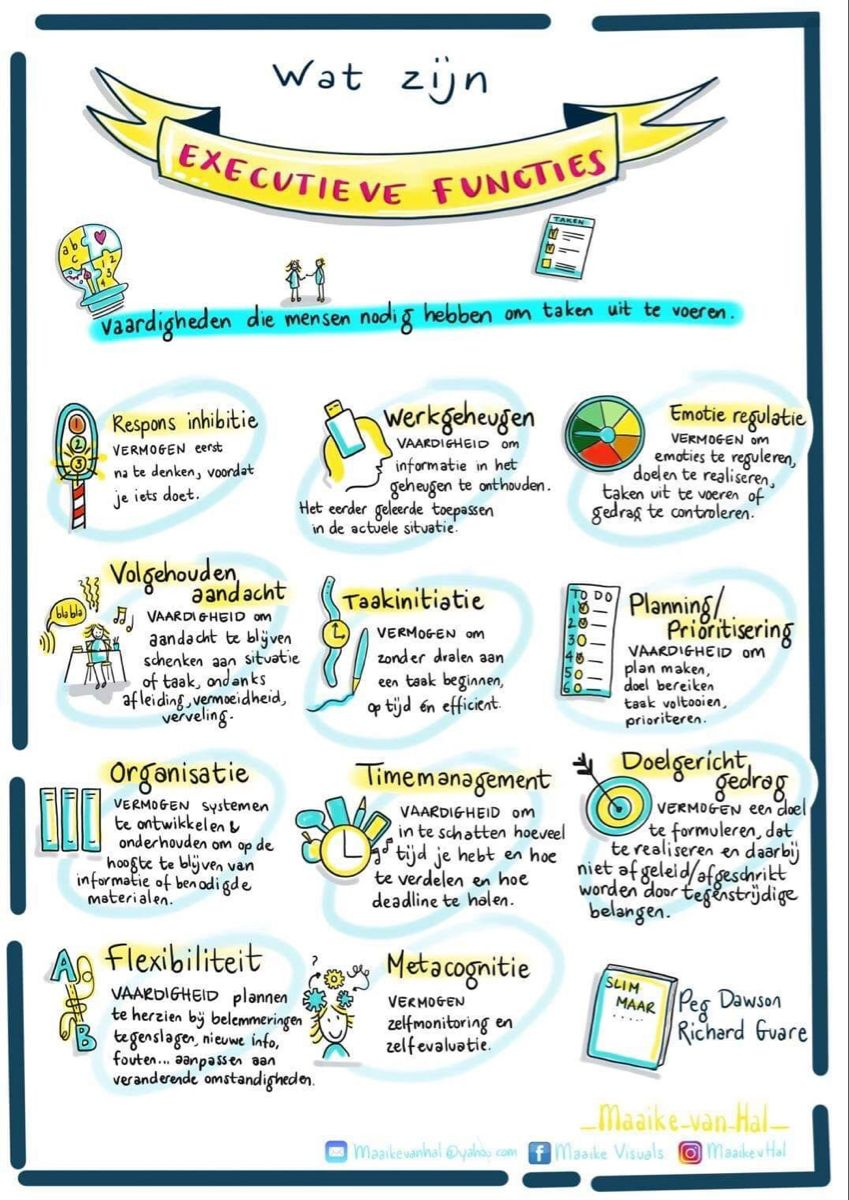 Wat zijn
EXECUTIEVE FUNCTIES
TAKEN
a b c
1 2
3
4
Vaardigheden die mensen nodig hebben om taken uit te voeren.
1
2
3
Respons inhibitie
VERMOGEN eerst
na te denken, voordat
je iets doet.
Werkgeheugen
VAARDIGHEID om
informatie in het
geheugen te onthouden.
Het eerder geleerde toepassen
in de actuele situatie.
Emotie regulatie
VERMOGEN om
emoties te reguleren,
doelen te realiseren,
taken uit te voeren of
gedrag te controleren.
bla bla
Volgehouden
aandacht
VAARDIGHEID om
aandacht te blijven
schenken aan situatie
of taak, ondanks
afleiding, vermoeidheid,
verveling.
Taakinitiatie
VERMOGEN om
zonder dralen aan
een taak beginnen,
op tijd én efficient.
TO DO
1
2
3
4
5
6
Planning/
Prioritisering
VAARDIGHEID om
plan maken,
doel bereiken
taak voltooien,
prioriteren.
Organisatie
VERMOGEN systemen
te ontwikkelen &
onderhouden om op de
hoogte te blijven van
informatie of benodigde
materialen.
Timemanagement
VAARDIGHEID om
in te schatten hoeveel
tijd je hebt en hoe
te verdelen en hoe
deadline te halen.
Doelgericht
gedrag
VERMOGEN een doel
te formuleren, dat
te realiseren en daarbij
niet afgeleid/afgeschrikt
worden door tegenstrijdige
belangen.
A
B
Flexibiliteit
VAARDIGHEID plannen
te herzien bij belemmeringen
tegenslagen, nieuwe info,
fouten... aanpassen aan
veranderende omstandigheden.
?
Metacognitie
VERMOGEN
zelfmonitoring en
zelfevaluatie.
SLIM
MAAR
.....
Peg Dawson
Richard Guare
_Maaike_van_Hal_
Maaikevanhal@yahoo.com
f Maaike Visuals
MaaikevHal